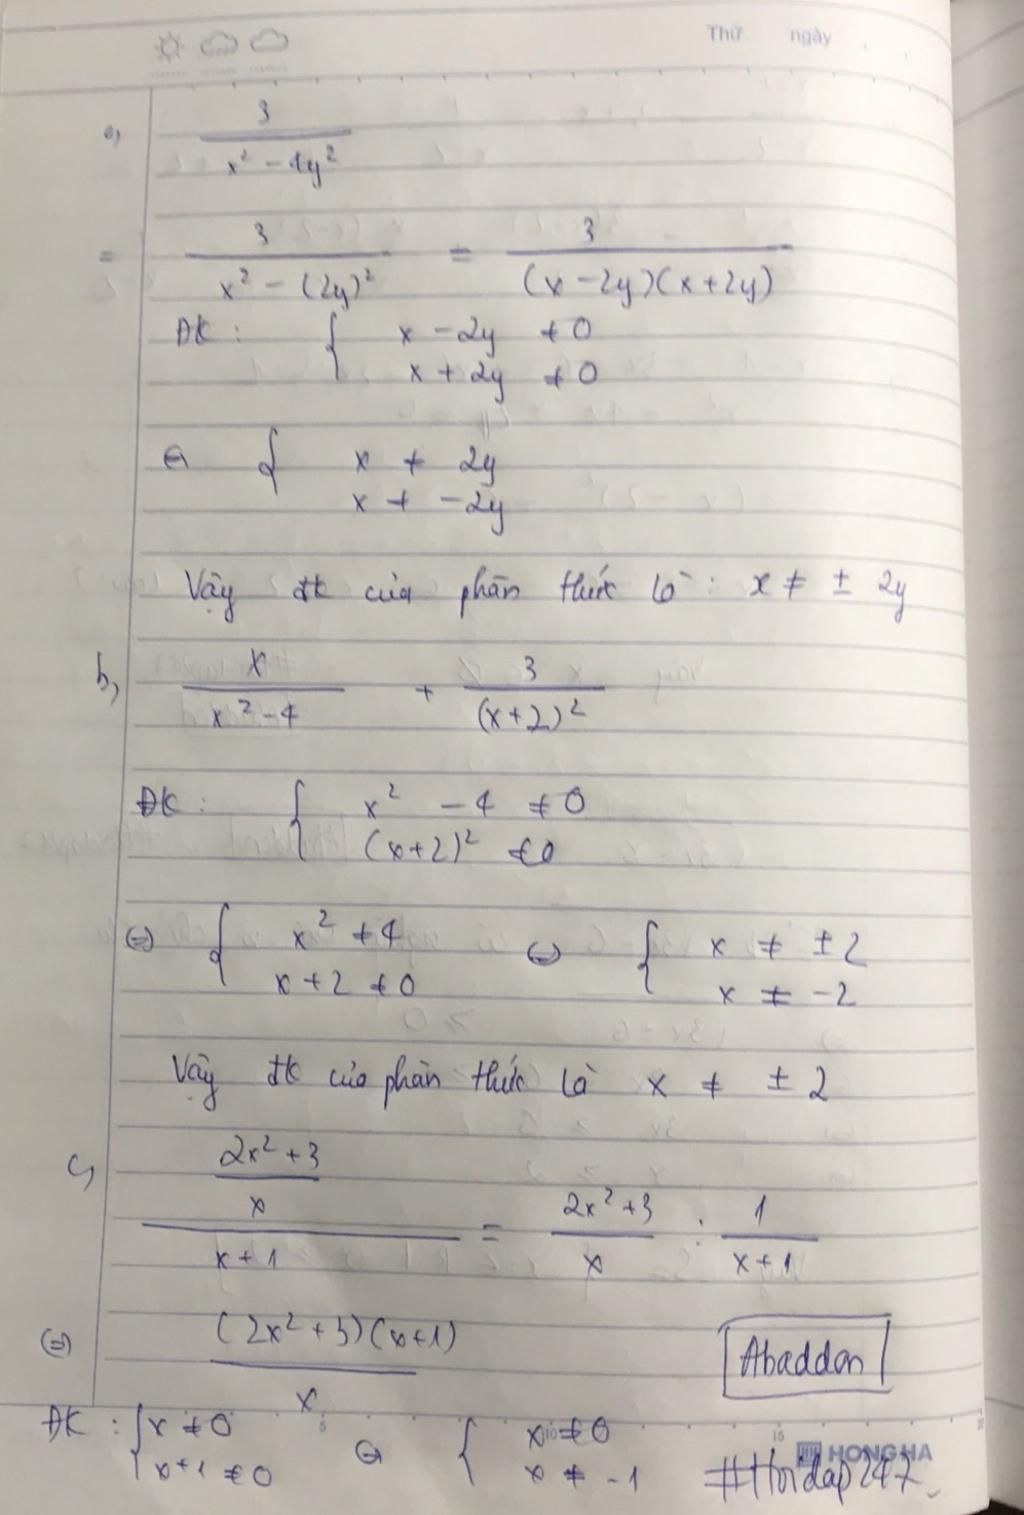 Thứ ngày
a, 3 / (x² - 4y²)
= 3 / (x² - (2y)²) = 3 / ((x - 2y)(x + 2y))
ĐK : { x - 2y ≠ 0
x + 2y ≠ 0
⇔ { x ≠ 2y
x ≠ -2y
Vậy đk của phân thức là : x ≠ ± 2y
b, x / (x² - 4) + 3 / (x+2)²
ĐK : { x² - 4 ≠ 0
(x+2)² ≠ 0
⇔ { x² ≠ 4 ⇔ { x ≠ ±2
x + 2 ≠ 0 x ≠ -2
Vậy đk của phân thức là x ≠ ± 2
c, ((2x² + 3) / x) / (x + 1) = (2x² + 3) / x : 1 / (x + 1)
⇔ (2x² + 3)(x+1) / x
Abaddon
ĐK : { x ≠ 0 ⇔ { x ≠ 0
x+1 ≠ 0 x ≠ -1
HONG HA
#Hoidap247